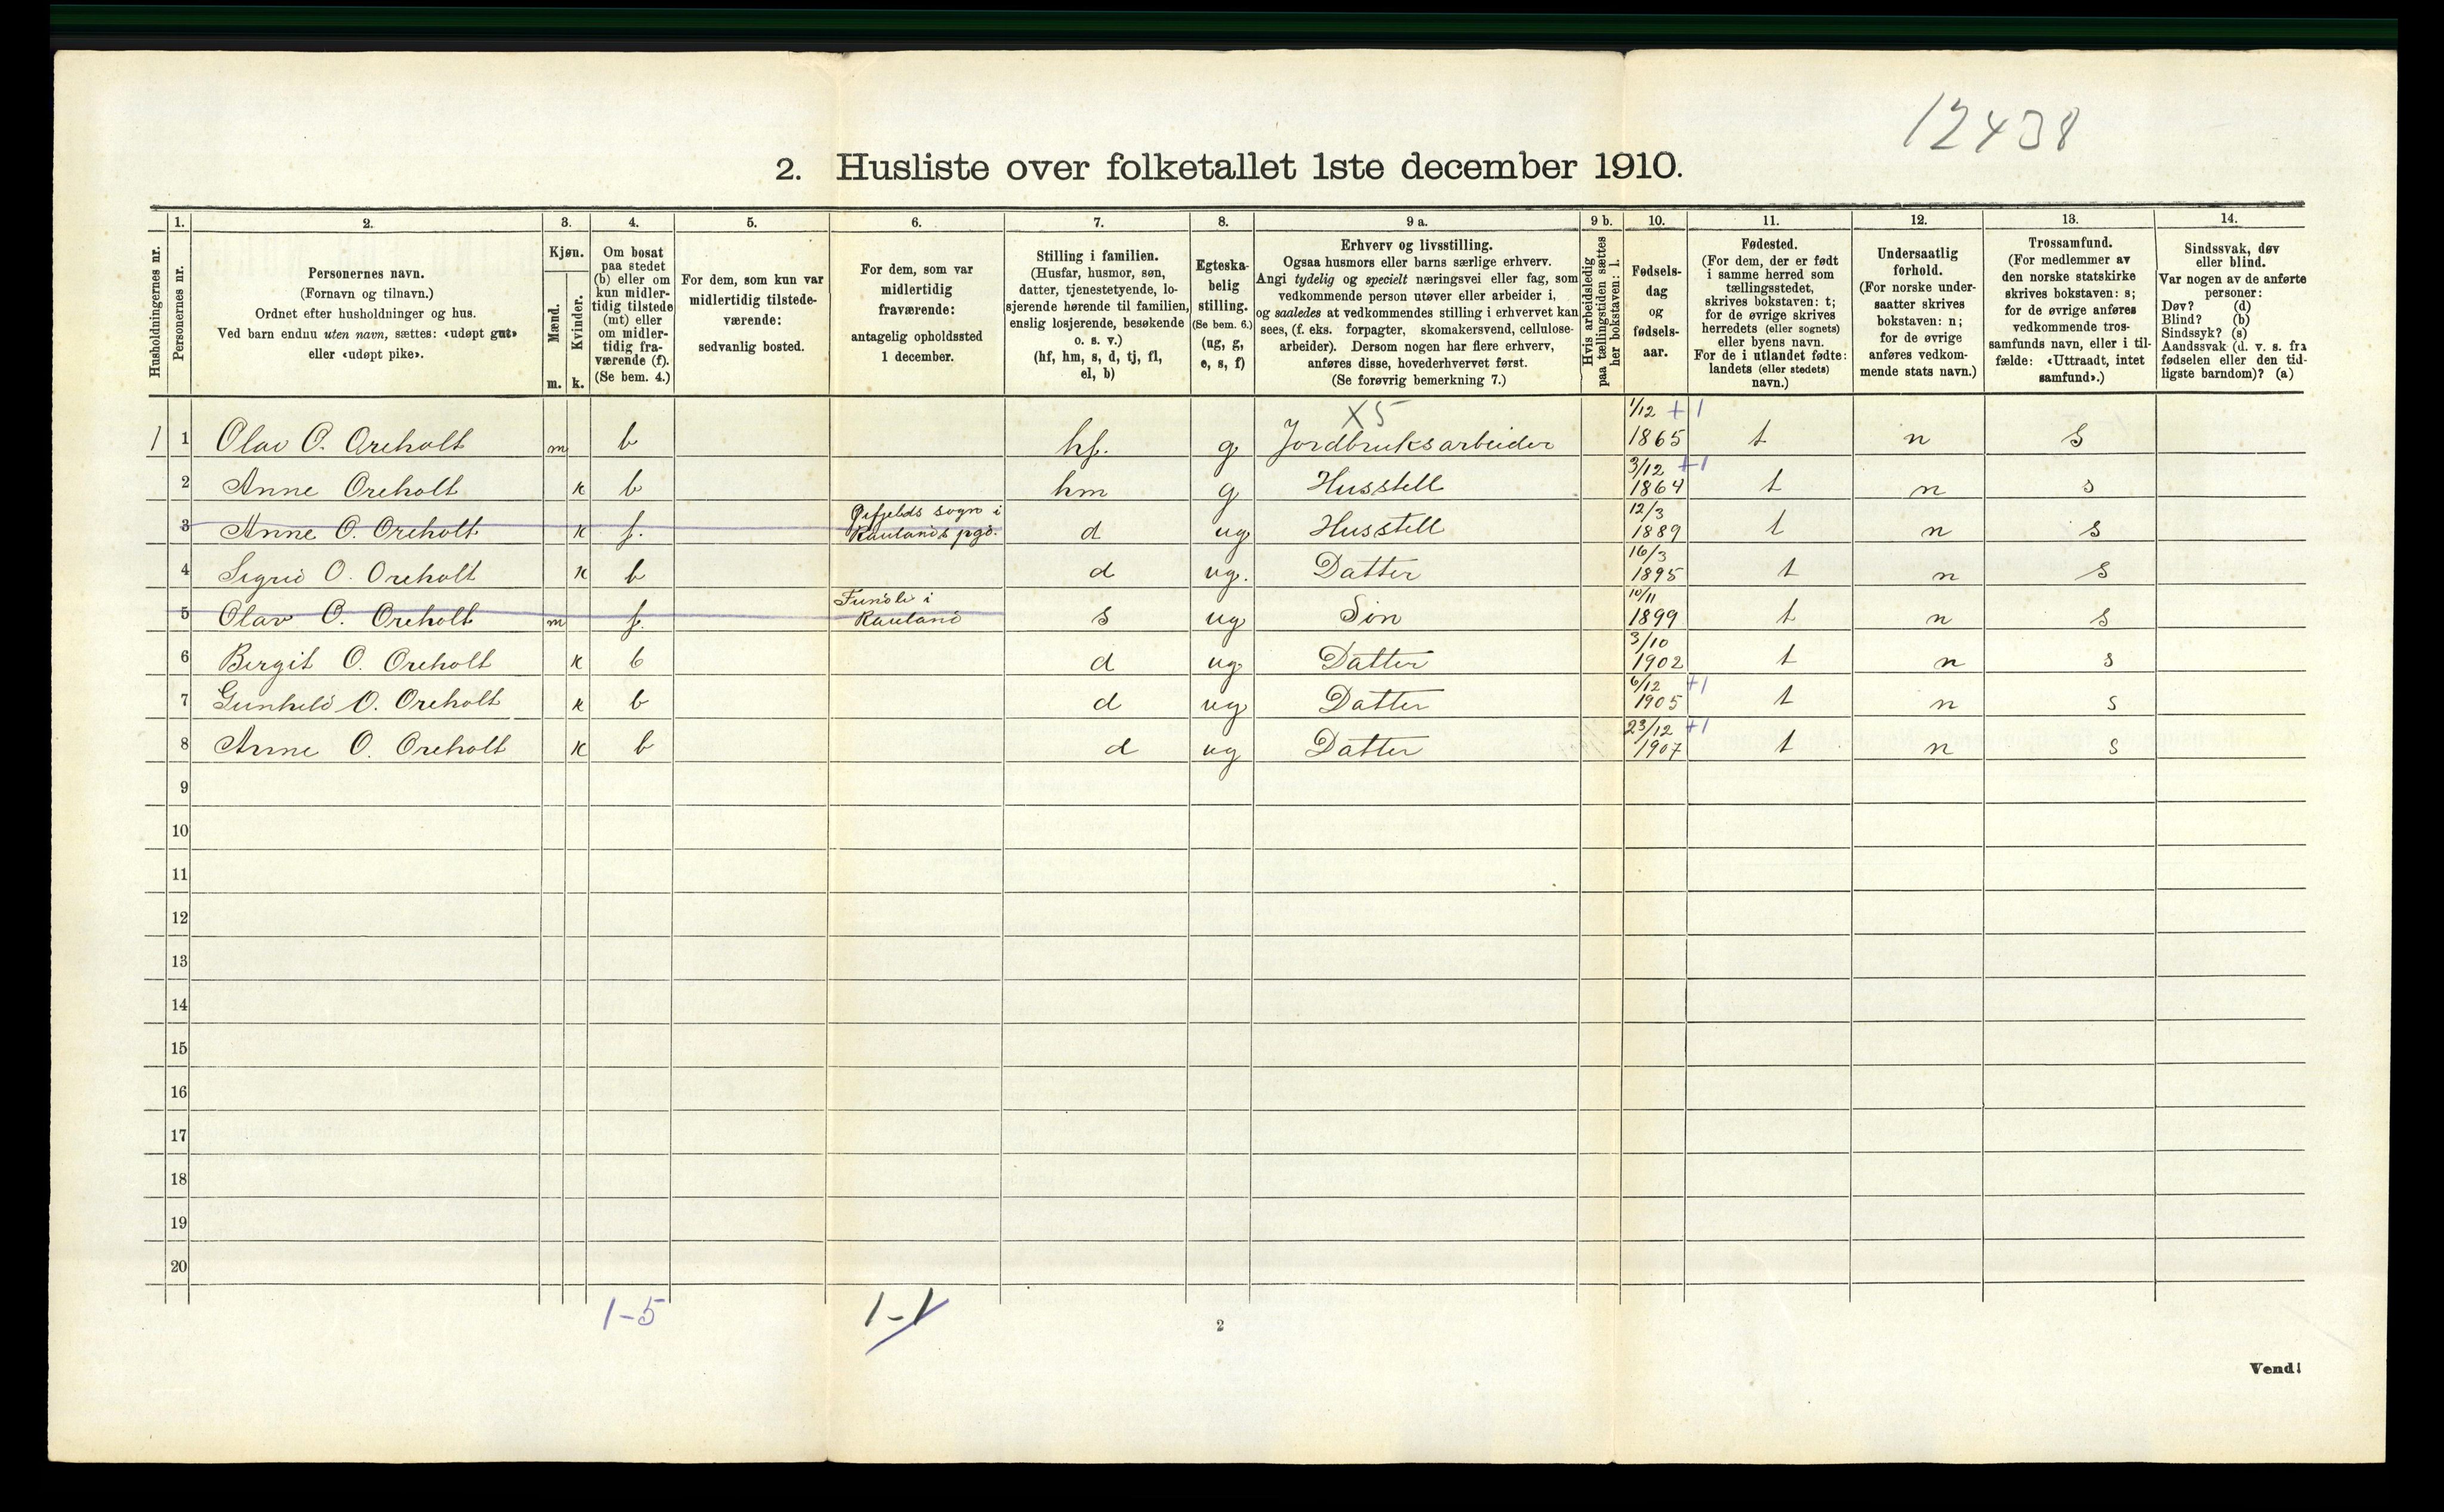 12438
2. Husliste over folketallet 1ste december 1910.
Husholdningernes nr.
1. Personernes nr.
2. Personernes navn. (Fornavn og tilnavn.) Ordnet efter husholdninger og hus. Ved barn endnu uten navn, sættes: «udøpt gut» eller «udøpt pike».
3. Kjøn. Mænd. m. Kvinder. k.
4. Om bosat paa stedet (b) eller om kun midlertidig tilstede (mt) eller om midlertidig fraværende (f). (Se bem. 4.)
5. For dem, som kun var midlertidig tilstedeværende: sedvanlig bosted.
6. For dem, som var midlertidig fraværende: antagelig opholdssted 1 december.
7. Stilling i familien. (Husfar, husmor, søn, datter, tjenestetyende, losjerende hørende til familien, enslig losjerende, besøkende o. s. v.) (hf, hm, s, d, tj, fl, el, b)
8. Egteskabelig stilling. (Se bem. 6.) (ug, g, e, s, f)
9 a. Erhverv og livsstilling. Ogsaa husmors eller barns særlige erhverv. Angi tydelig og specielt næringsvei eller fag, som vedkommende person utøver eller arbeider i, og saaledes at vedkommendes stilling i erhvervet kan sees, (f. eks. forpagter, skomakersvend, cellulosearbeider). Dersom nogen har flere erhverv, anføres disse, hovederhvervet først. (Se forøvrig bemerkning 7.)
9 b. Hvis arbeidsledig paa tællingstiden sættes her bokstaven: l.
10. Fødselsdag og fødselsaar.
11. Fødested. (For dem, der er født i samme herred som tællingsstedet, skrives bokstaven: t; for de øvrige skrives herredets (eller sognets) eller byens navn. For de i utlandet fødte: landets (eller stedets) navn.)
12. Undersaatlig forhold. (For norske undersaatter skrives bokstaven: n; for de øvrige anføres vedkommende stats navn.)
13. Trossamfund. (For medlemmer av den norske statskirke skrives bokstaven: s; for de øvrige anføres vedkommende trossamfunds navn, eller i tilfælde: «Uttraadt, intet samfund».)
14. Sindssvak, døv eller blind. Var nogen av de anførte personer: Døv? (d) Blind? (b) Sindssyk? (s) Aandssvak (d. v. s. fra fødselen eller den tidligste barndom)? (a)
X5 1/12 +1
1 1 Olav O. Oreholt m b hf. g Jordbruksarbeider 1865 t n S
3/12 +1
2 Anne Oreholt k b hm g Husstell 1864 t n s
sogn i 12/3
3 Anne O. Oreholt k f. Raulands pgd. d ug Husstell 1889 t n s
16/3
4 Sigrid O. Oreholt k b d ug. Datter 1895 t n s
i 10/11
5 Olav O. Oreholt m f. Rauland s ug Søn 1899 t n s
3/10
6 Bergit O. Oreholt k b d ug Datter 1902 t n s
6/12 +1
7 Gunhild O. Oreholt k b d ug Datter 1905 t n s
23/12 +1
8 Anne O. Oreholt k b d ug Datter 1907 t n s
9
10
11
12
13
14
15
16
17
18
19
20
1-5 1-1
2
Vend!